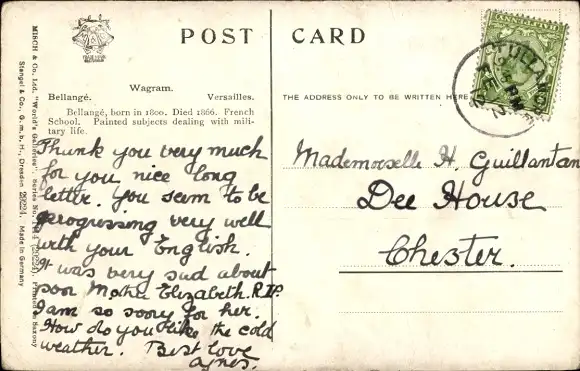 POST CARD
Wagram.
Bellangé. Versailles.
Bellangé, born in 1800. Died 1866. French
School. Painted subjects dealing with mili-
tary life.
THE ADDRESS ONLY TO BE WRITTEN HERE
Thank you very much
for you nice long
letter. You seem to be
progressing very well
with your English.
It was very sad about
poor Mother Elizabeth. R.I.P.
I am so sorry for her.
How do you like the cold
weather. Best love
Agnes.
Mademoiselle H. Guillantan
Dee House
Chester.
MISCH & Co. Ltd. "World's Galleries". Series No. Printed in Saxony
Stengel & Co., G. m. b. H., Dresden 29224. Made in Germany
TULLAMORE